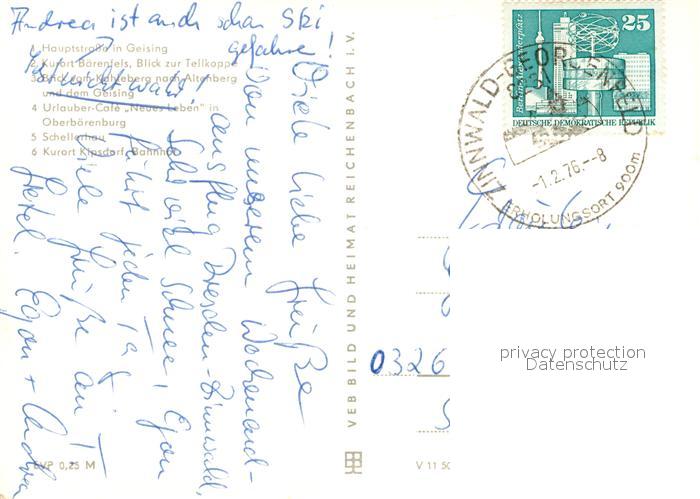 Andrea ist auch schon Ski
gefahren!
1 Hauptstraße in Geising
2 Kurort Bärenfels, Blick zur Tellkoppe
3 Blick vom Kahleberg nach Altenberg
und dem Geising
4 Urlauber-Café „Neues Leben" in
Oberbärenburg
5 Schellerhau
6 Kurort Kipsdorf, Bahnhof
Viele liebe Grüße
von unserem Wochenend-
ausflug Dresden-Zinnwald,
Sehr viel Schnee, Egon
fährt jeden Tag
Viele Grüße an
Egon + Andrea
EVP 0,25 M
VEB BILD UND HEIMAT REICHENBACH I. V.
V 11 50
Berlin-Alexanderplatz
25
DEUTSCHE DEMOKRATISCHE REPUBLIK
ZINNWALD-GEORGENFELD
-1.2.76.--8
ERHOLUNGSORT 900m
0326
privacy protection
Datenschutz